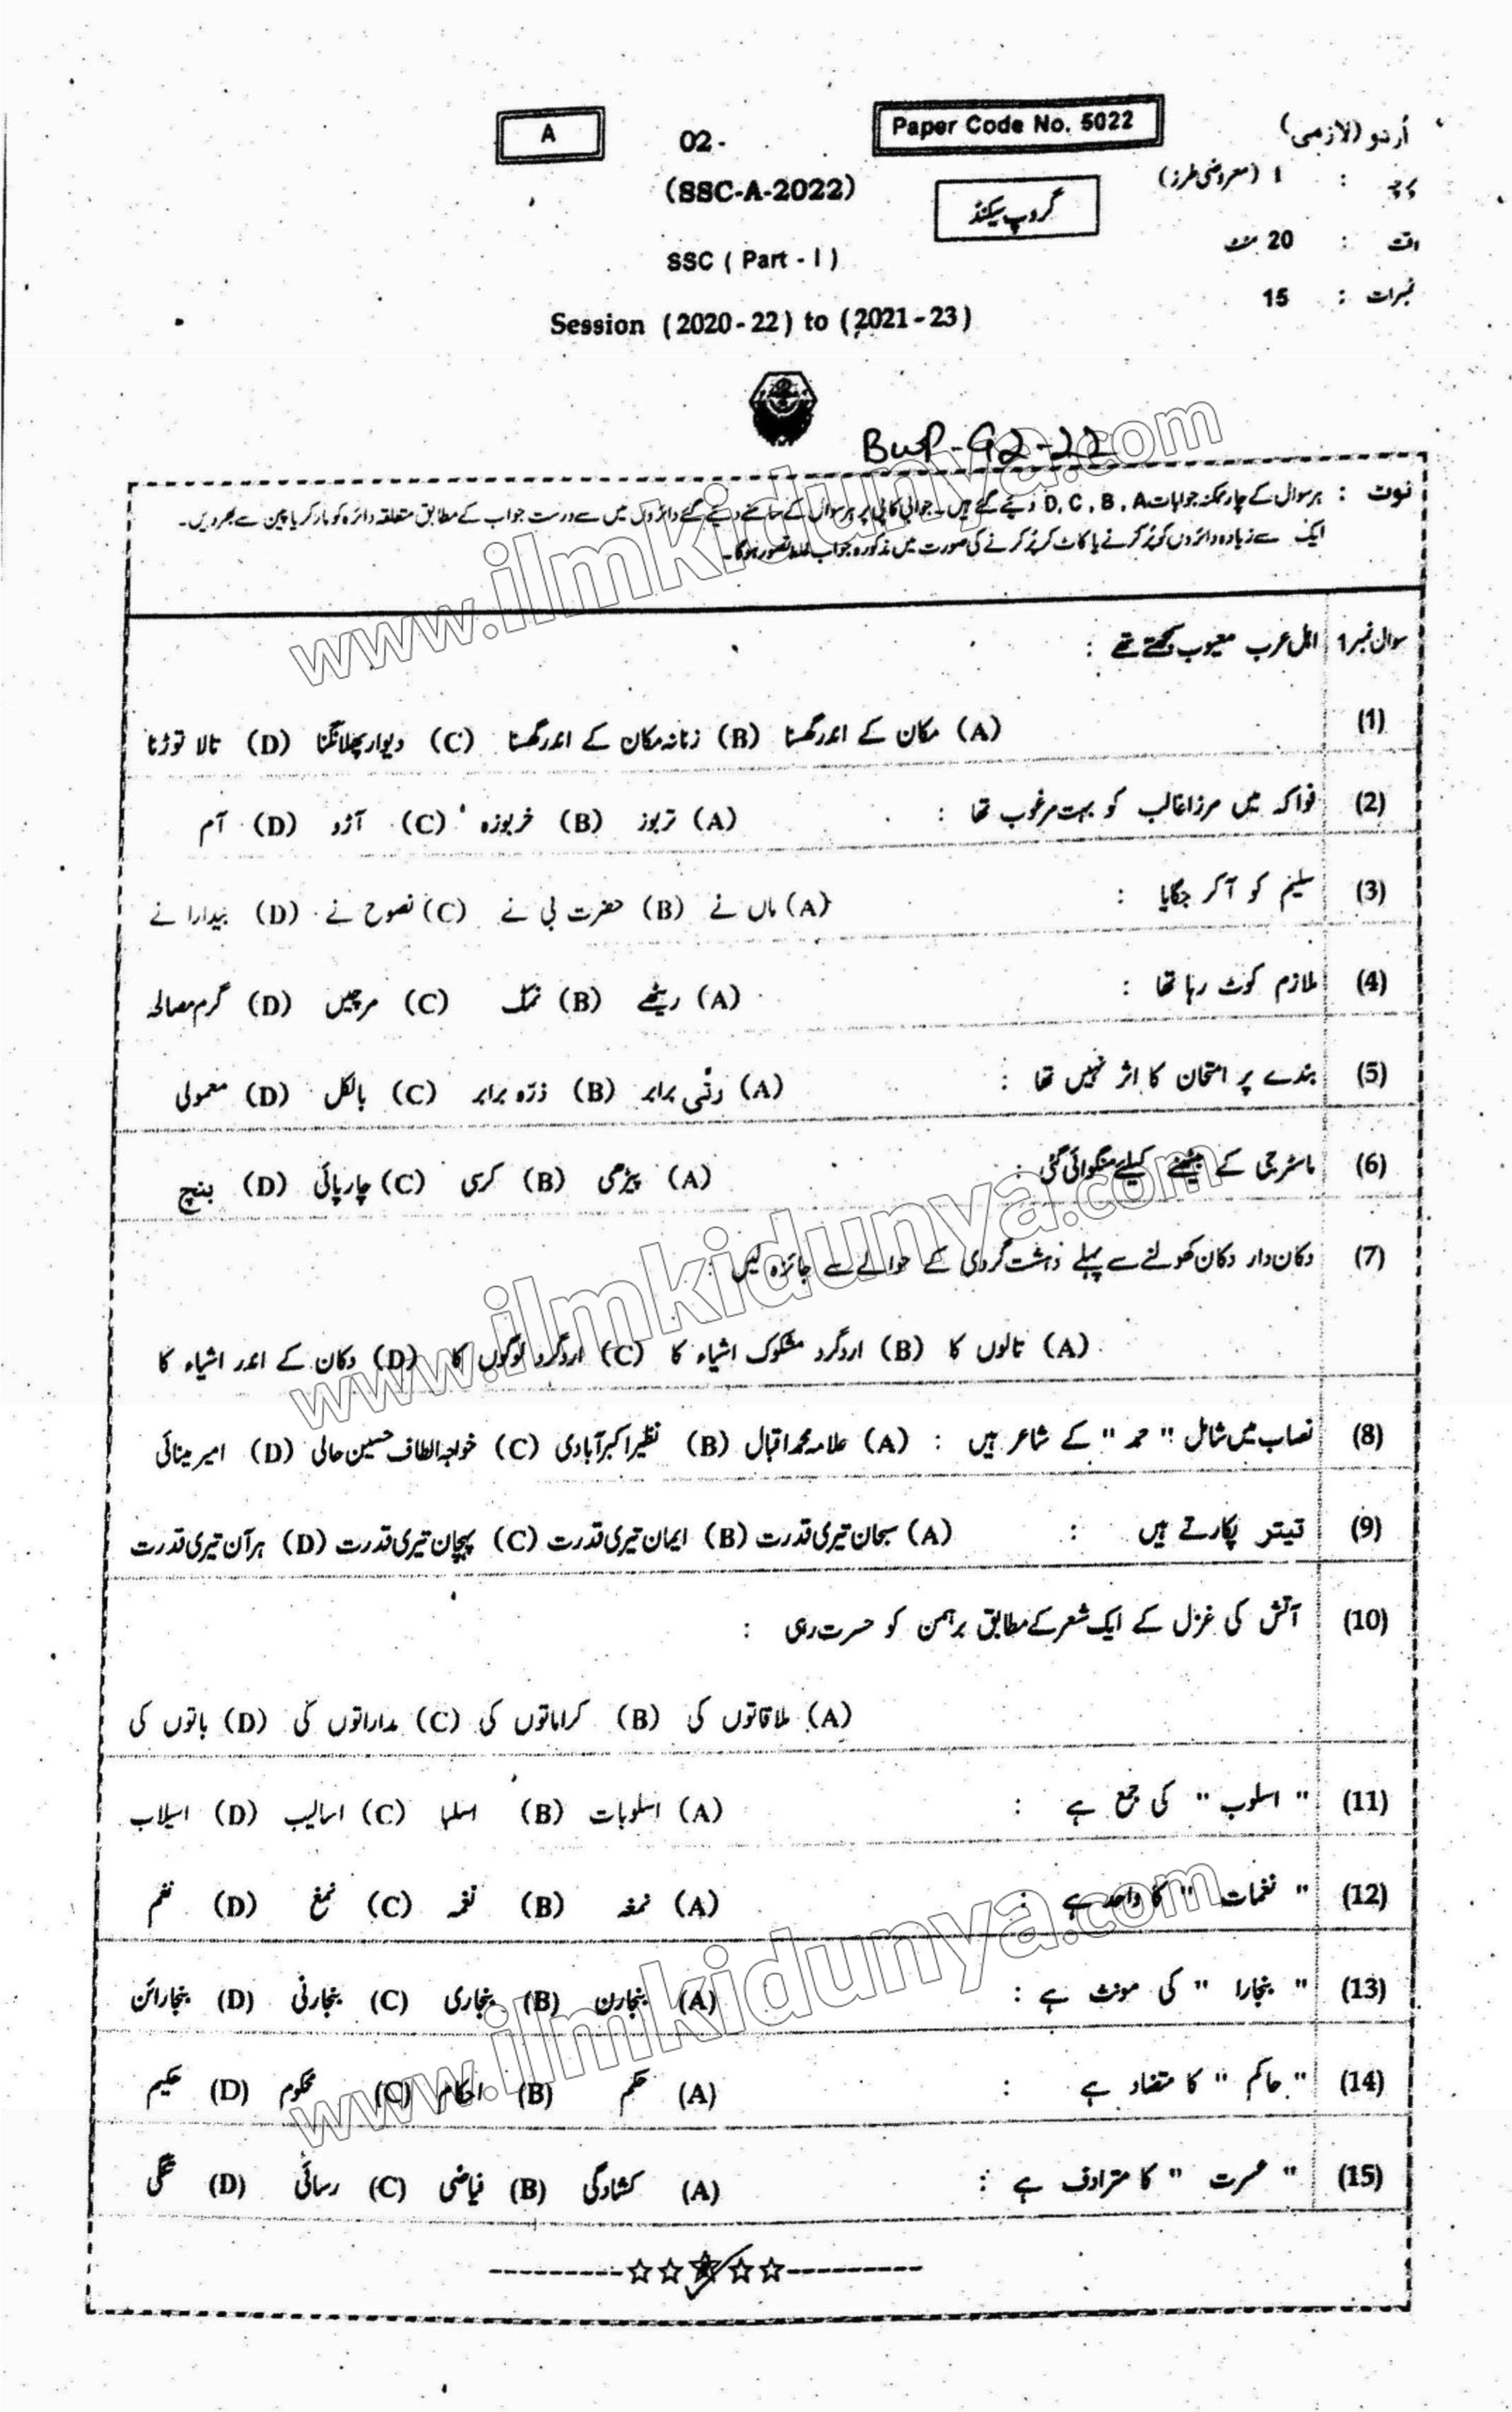 اُردو (لازمی)
Paper Code No. 5022
02-
A
پرچہ : I (معروضی طرز)
گروپ سیکنڈ
(SSC-A-2022)
وقت : 20 منٹ
SSC ( Part - I )
نمبرات : 15
Session (2020-22) to (2021-23)
BWP-G2-22
نوٹ : ہر سوال کے چار ممکنہ جوابات D, C, B, A دیئے گئے ہیں۔ جوابی کاپی پر ہر سوال کے سامنے دیئے گئے دائروں میں سے درست جواب کے مطابق متعلقہ دائرہ کو مارکر یا پین سے بھر دیں۔
ایک سے زیادہ دائروں کو پُر کرنے یا کاٹ کر پُر کرنے کی صورت میں مذکورہ جواب غلط تصور ہوگا۔
سوال نمبر 1 اہل عرب معیوب سمجھتے تھے :
(1) (A) مکان کے اندر گھسنا (B) زنانہ مکان کے اندر گھسنا (C) دیوار پھلانگنا (D) تالا توڑنا
(2) فواکہ میں مرزا غالب کو بہت مرغوب تھا : (A) تربوز (B) خربوزہ (C) آڑو (D) آم
(3) سلیم کو آکر جگایا : (A) ماں نے (B) حضرت بی نے (C) نصوح نے (D) بیدارا نے
(4) ملازم کوٹ رہا تھا : (A) ریٹھے (B) نمک (C) مرچیں (D) گرم مصالحہ
(5) بندے پر امتحان کا اثر نہیں تھا : (A) رتی برابر (B) ذرّہ برابر (C) بالکل (D) معمولی
(6) ماسٹر جی کے بیٹھنے کیلئے منگوائی گئی : (A) پیڑھی (B) کرسی (C) چارپائی (D) بنچ
(7) دکان دار دکان کھولنے سے پہلے دہشت گردی کے حوالے سے جائزہ لیں :
(A) تالوں کا (B) اردگرد مشکوک اشیاء کا (C) اردگرد لوگوں کا (D) دکان کے اندر اشیاء کا
(8) نصاب میں شامل " حمد " کے شاعر ہیں : (A) علامہ محمد اقبال (B) نظیر اکبر آبادی (C) خواجہ الطاف حسین حالی (D) امیر مینائی
(9) تیتر پکارتے ہیں : (A) سبحان تیری قدرت (B) ایمان تیری قدرت (C) پہچان تیری قدرت (D) ہر آن تیری قدرت
(10) آتش کی غزل کے ایک شعر کے مطابق برہمن کو حسرت رہی :
(A) ملاقاتوں کی (B) کراماتوں کی (C) مداراتوں کی (D) باتوں کی
(11) " اسلوب " کی جمع ہے : (A) اسلوبات (B) اسلبا (C) اسالیب (D) اسیلاب
(12) " نغمات " کا واحد ہے : (A) نمغہ (B) نغمہ (C) نمغ (D) نغم
(13) " بنجارا " کی مونث ہے : (A) بنجارن (B) بنجاری (C) بنجارنی (D) بنجارائن
(14) " حاکم " کا متضاد ہے : (A) حکم (B) احکام (C) محکوم (D) حکیم
(15) " عسرت " کا مترادف ہے : (A) کشادگی (B) فیاضی (C) رسائی (D) تنگی
www.ilmkidunya.com
www.ilmkidunya.com
www.ilmkidunya.com